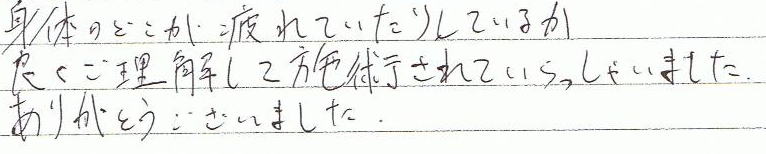 身体のどこが疲れていたりしているか
良くご理解して施術されていらっしゃいました.
ありがとうございました.